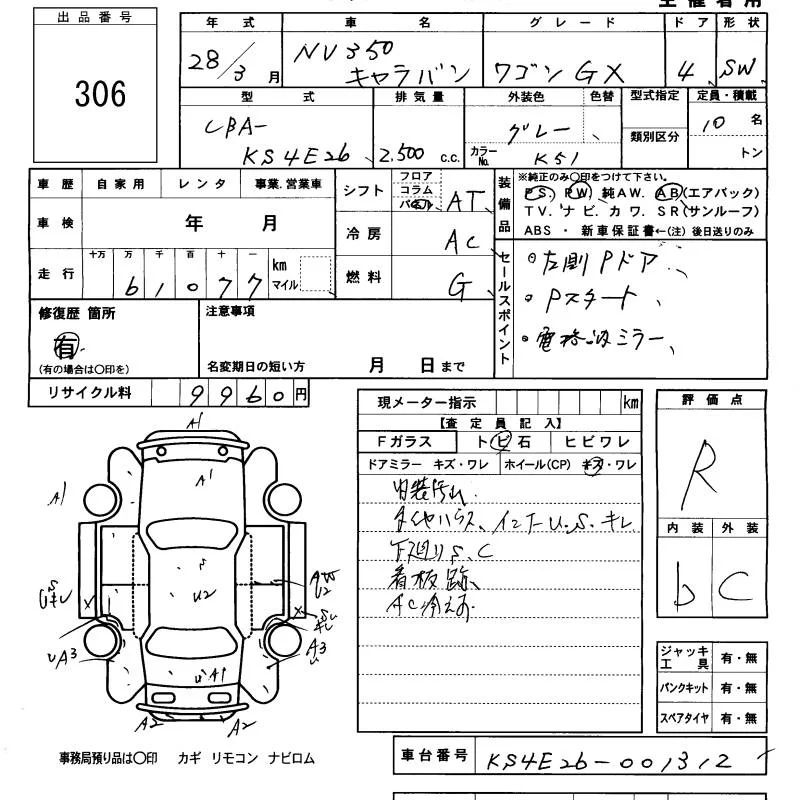 出品番号
306
年式 車名 グレード ドア 形状
28/3月 NV350 キャラバン ワゴン GX 4 SW
型式 排気量 外装色 色替 型式指定 定員・積載
CBA- KS4E26 2.500 c.c. グレー カラーNo. K51 類別区分 10 名
トン
車歴 自家用 レンタ 事業.営業車
車検 年 月
走行 十万 万 千 百 十 一
61077 km マイル
シフト フロア コラム パネル AT
冷房 AC
燃料 G
装備品
※純正のみ〇印をつけて下さい。
PS. PW. 純AW. AB(エアバック)
TV. ナビ. カワ. SR(サンルーフ)
ABS ・ 新車保証書←(注) 後日送りのみ
セールスポイント
・左側Pドア
・Pスタート
・電格ミラー
修復歴 箇所
有
(有の場合は〇印を)
注意事項
名変期日の短い方 月 日まで
リサイクル料 9960円
現メーター指示 km
【査定員記入】
Fガラス トビ石 ヒビワレ
ドアミラー キズ・ワレ ホイール(CP) キズ・ワレ
内装汚れ
タイヤハウス、インナーU.S.キレ
下廻りS.C
看板跡
AC冷えず
評価点
R
内装 外装
b C
ジャッキ工具 有・無
パンクキット 有・無
スペアタイヤ 有・無
A1
A1
A1
S
U2
U2
UA3
A3
U
UA1
A2 A2
事務局預り品は〇印 カギ リモコン ナビロム
車台番号 KS4E26-001312